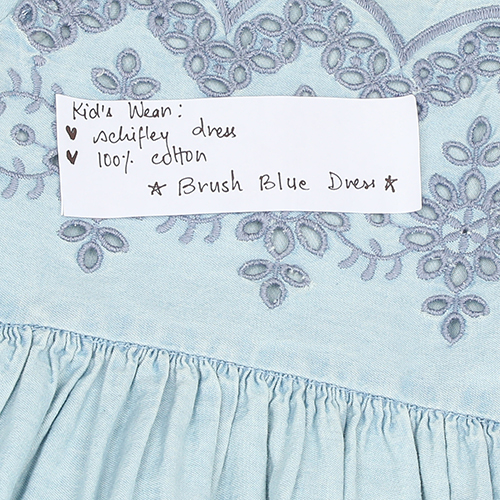 Kid's Wear:
♥ schifley dress
♥ 100% cotton
☆ Brush Blue Dress ☆